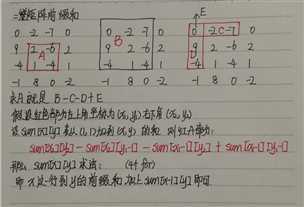 二维矩阵前缀和
E
0 -2 -7 0 0 -2 -7 0 0 -2 -7 0
9 2 -6 2 9 2 -6 2 9 2 -6 2
-4 1 -4 1 -4 1 -4 1 -4 1 -4 1
-1 8 0 -2 -1 8 0 -2 -1 8 0 -2
A B C D
求A就是 B-C-D+E
假设红色部分左上角坐标为(x₁,y₁)右下角(x₂,y₂)
设sum[x][y]表从(1,1)加到(x,y)的和 则红A部分:
sum[x₂][y₂] - sum[x₂][y₁-1] - sum[x₁-1][y₂] + sum[x₁-1][y₁-1]
那么 sum[x][y]求法:
即 x这一行到y的前缀和加上sum[x-1][y]即可